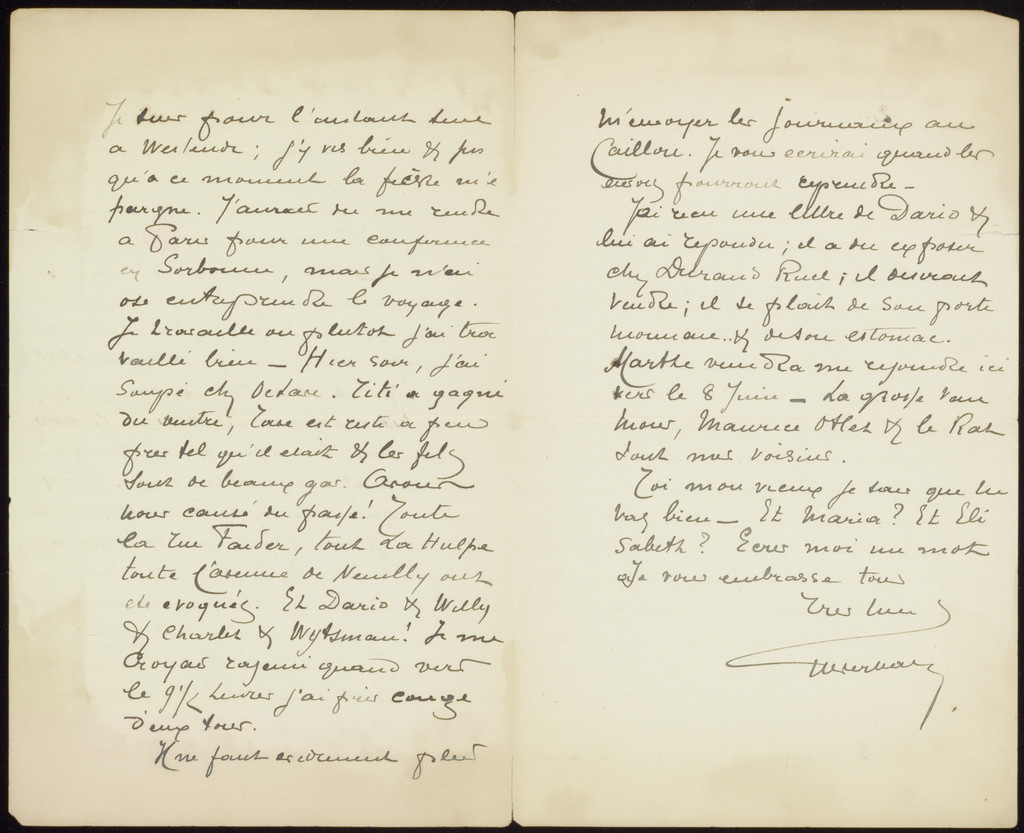 Je suis pour l'instant seul
a Westende ; j'y vis bien & puis
qu'a ce moment la fièvre m'é
pargne. J'aurais du me rendre
a Paris pour une conference
en Sorbonne, mais je n'ai
osé entreprendre le voyage.
Je travaille ou plutot j'ai tra
vaillé bien — Hier soir, j'ai
soupé chez Octave. Titi a gagné
du ventre, est resté a peu
pres tel qu'il etait & les fils
sont de beaux gas. Avons
nous causé du passé! Toute
la rue Faider, tout La Hulpe
toute l'avenue de Neuilly ont
été evoqués. Et Dario & Willy
& Charlet & Wytsman! Je me
croyais rajeuni quand vers
le 9 1/2 heures j'ai pris congé
d'eux tous.
Il ne faut evidemment plus
m'envoyer les journaux au
Caillou. Je vous ecrirai quand les
envois pourront reprendre —
J'ai reçu une lettre de Dario &
lui ai repondu ; il a du exposer
chez Durand Ruel ; il desirait
vendre ; il se plait de son porte
monnaie.. & de son estomac.
Marthe viendra me rejoindre ici
vers le 8 Juin — La grosse Van
Mons, Maurice Otlet & le Rat
sont mes voisins.
Toi mon vieux je sais que tu
vas bien — Et Maria? Et Eli
sabeth? Ecris moi un mot
Je vous embrasse tous
Tres bien